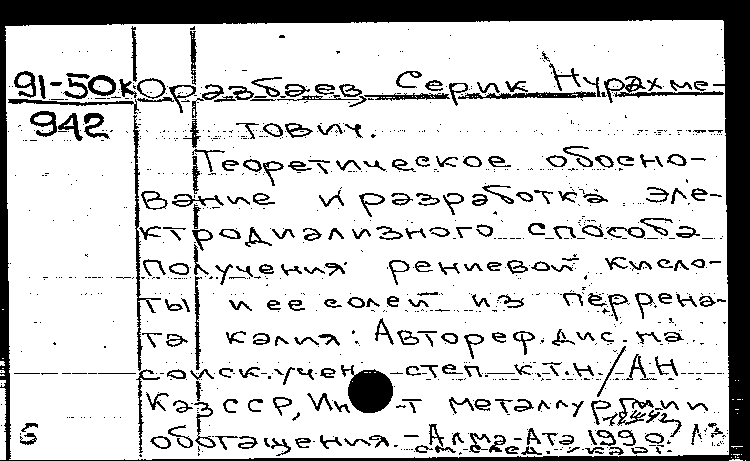 91-50к Оразбаев Серик Нурахме-
942 тович.
Теоретическое обосно-
вание и разработка эле-
ктродиализного способа
получения рениевой кисло-
ты и ее солей из перрена-
та калия: Автореф. дис. на
соиск. учен. степ. к.т.н. / АН
КазССР, Ин-т металлургии и
обогащения. - Алма-Ата 1990.
Б см. след. карт.